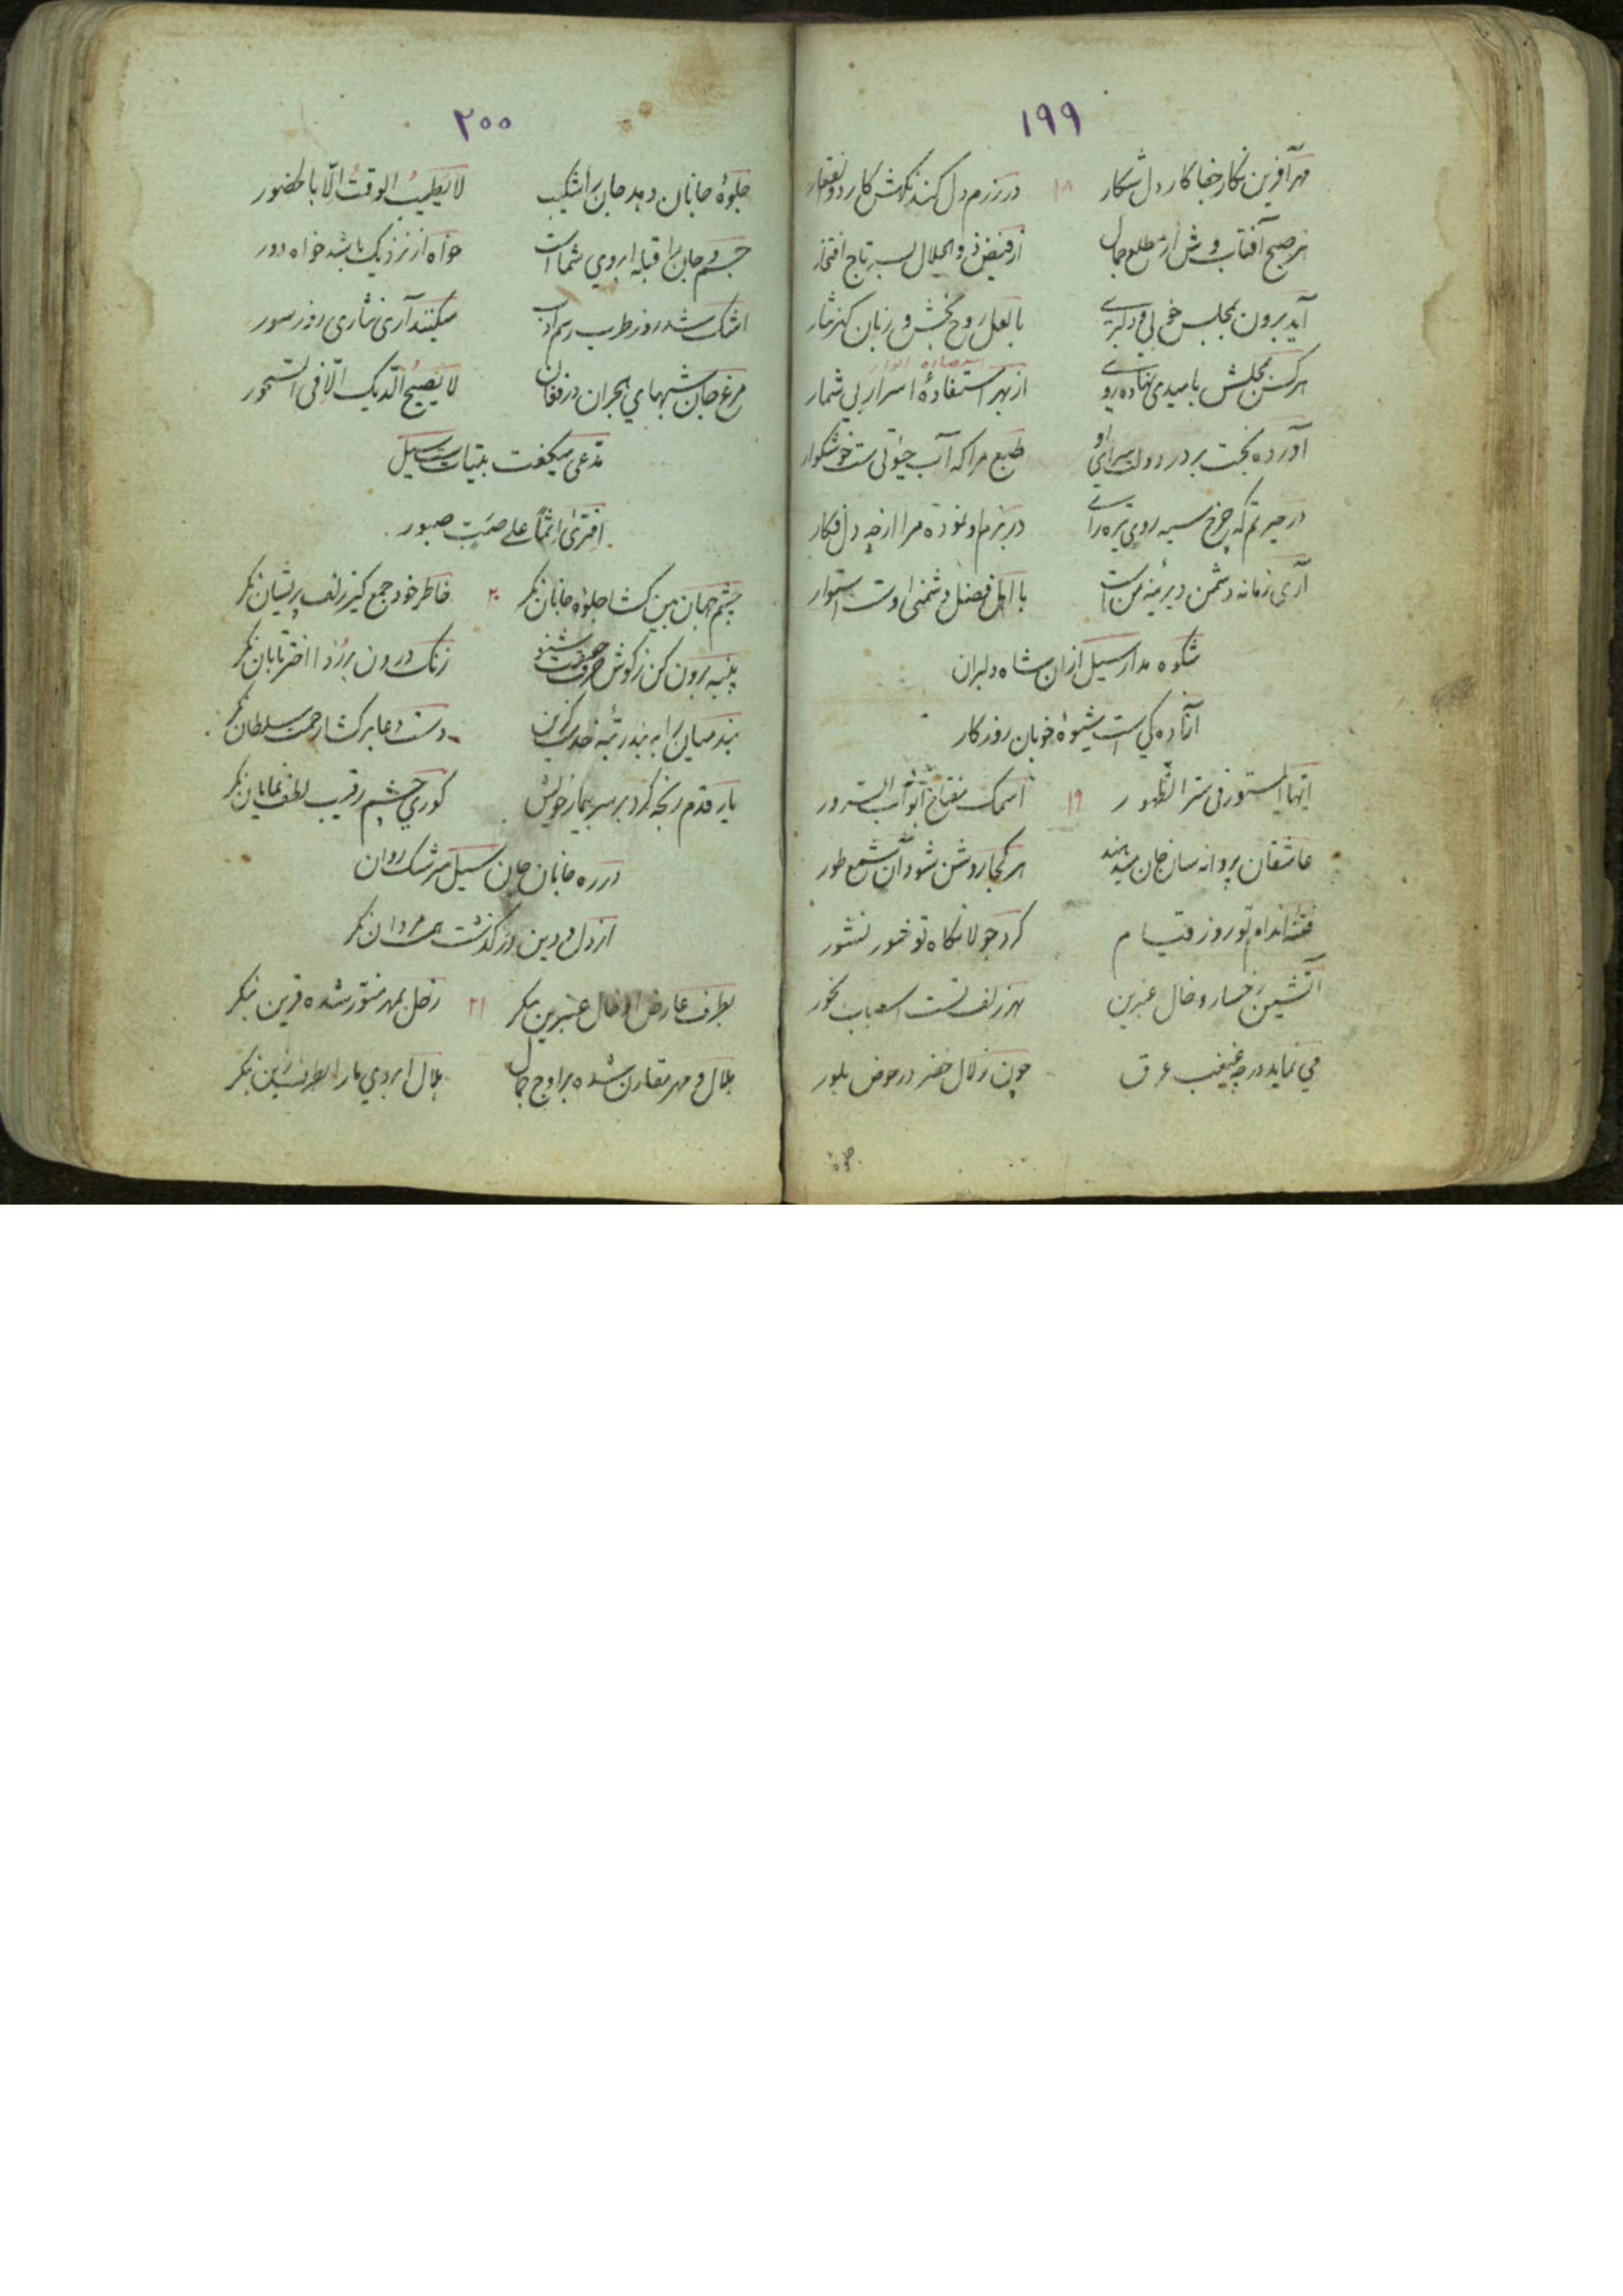 ۱۹۹
مهرآفرین نگار جفا کار دل شکار ۱۸ در رزم دل کند نگهش کار ذوالفقار
هر صبح آفتاب وش از مطلع جمال از فیض ذو الجلال بسر تاج افتخار
آید برون بمجلس خوبی و دلبری با لعل روح بخش و زبان گهر نثار
هر کس بمجلسش بامیدی نهاده روی از بهر استفادهٔ اسرار بی شمار
آورده بخت بر در دولت سرای او طبع مرا که آب حیوتی ست خوشگوار
در حیرتم که چرخ سیه روی تیره رای در بزم او نموده مرا از چه دل فکار
آری زمانه دشمن دیرینه من است با اهل فضل دشمنی اوست استوار
شکوه مدار سیل ازان شاه دلبران
آزاده کی است شیوهٔ خوبان روزکار
ایها المستور فی ستر الظهور ۱۹ اسمک مفتاح ابواب السرور
عاشقان پروانه سان جان میدهند هر کجا روشن شود آن شمع طور
فتنه اندام تو روز قیام کرد جولانکاه تو نشور
آتشین رخسار و خال عنبرین بهر زلف تست اسباب بخور
می نماید در چه غبغب عرق چون زلال خضر در حوض بلور
جلوهٔ
۲۰۰
جلوهٔ جانان دهد جان را شکیب لا یطیب الوقت الّا بالحضور
جسم و جان را قبله ابروی شما است خواه از نزدیک باشد خواه دور
اشک شد روز طرب رسم ادب میکنند آری نثاری روز سور
مرغ جان شبهای هجران در فغان لا یصیح الدیک الّا فی السحور
مدعی میکفت بیتیات سیل
افتری اثماً علی صبّ صبور
چشم جهان بین کشا جلوهٔ جانان نکر ۲۰ خاطر خود جمع کن زلف پریشان نکر
پنبه برون کن ز کوش حرف شنو زنک درون بر زدا اختر تابان نکر
بند میان را به بند رتبه خدمت کزین دست دعا بر کشا رحمت سلطان نکر
یار قدم رنجه کرد بر سر بیمار خویش کوری چشم رقیب لطف نمایان نکر
در ره جانان جان سیل سرشک روان
از دل و دین در کذشت همت مردان نکر
بطرف عارض او خال عنبرین بنکر ۲۱ زحل بمهر منور شده قرین بنکر
هلال و مهر مقارن شده بر اوج جمال هلال ابروی یار بنکر